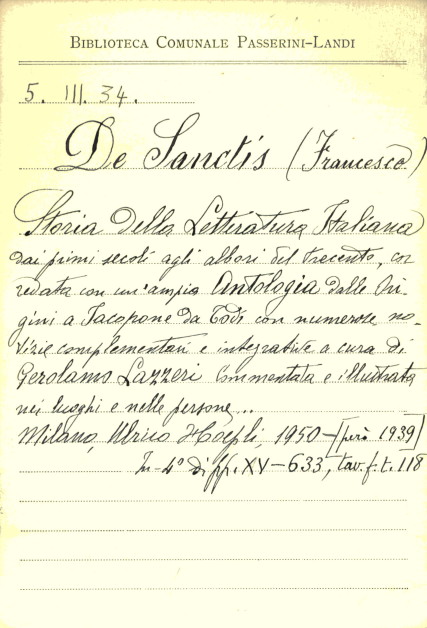 BIBLIOTECA COMUNALE PASSERINI-LANDI
5. III. 34.
De Sanctis (Francesco)
Storia della Letteratura Italiana
dai primi secoli agli albori del trecento, cor
redata con un'ampia Antologia dalle Ori-
gini a Jacopone da Todi con numerose no-
tizie complementari e integrative a cura di
Gerolamo Lazzeri Commentata e illustrata
nei luoghi e nelle persone...
Milano, Ulrico Hoepli, 1950 - [però 1939]
In-4° di pp. XV-633, tav. f. t. 118